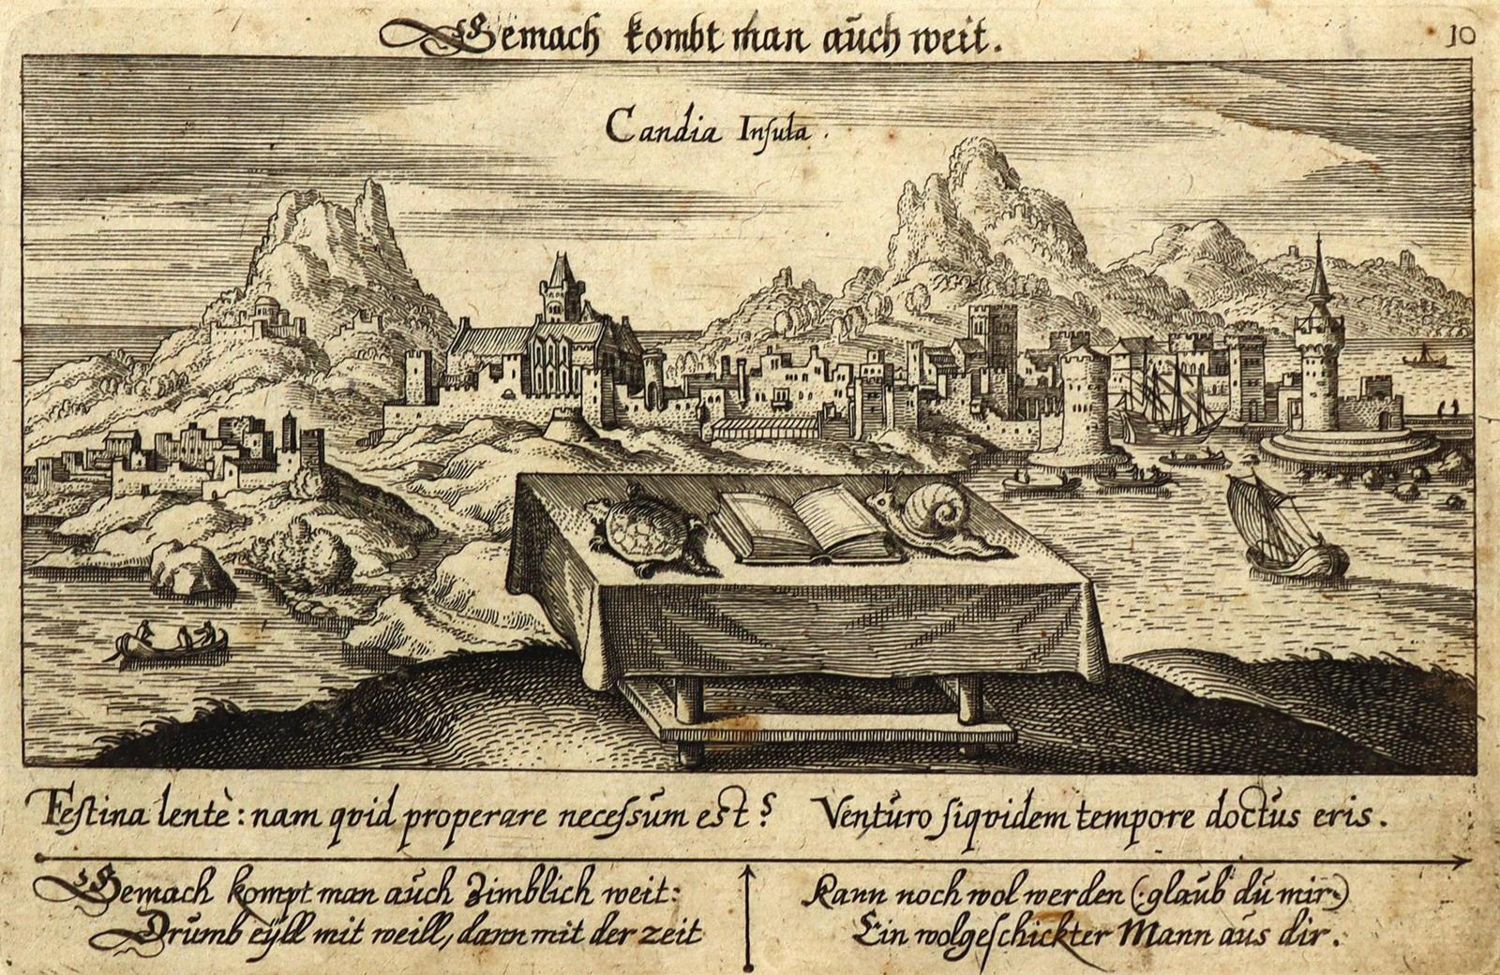 Gemach kombt man aŭch weit.
10
Candia Inſula.
Feſtina lentè: nam qvid properare neceſsŭm est? Ventŭro ſiqvidem tempore doctŭs eris.
Gemach kompt man aŭch Zimblich weit:
Drŭmb eÿll mit weill, dann mit der zeit
Kann noch wol werden (: glaŭb dŭ mir:)
Ein wolgeſchickter Mann aŭs dir.